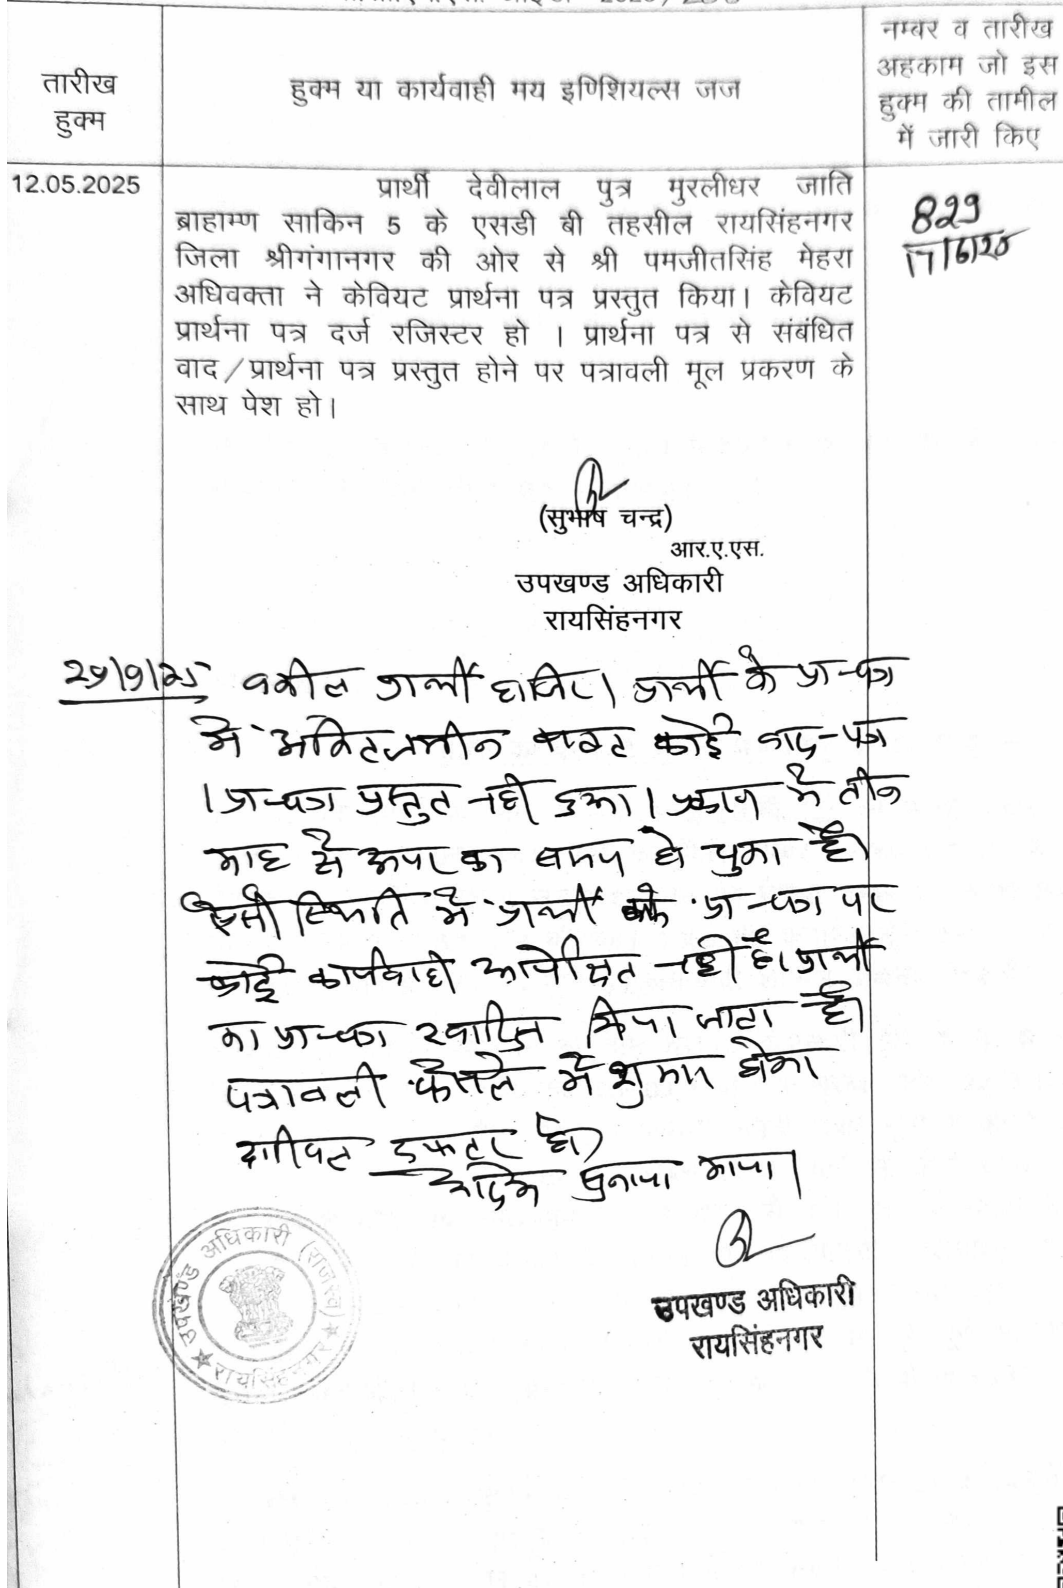 तारीख
हुक्म
हुक्म या कार्यवाही मय इणिशियल्स जज
नम्बर व तारीख
अहकाम जो इस
हुक्म की तामील
में जारी किए
12.05.2025
प्रार्थी देवीलाल पुत्र मुरलीधर जाति
ब्राहाम्ण साकिन 5 के एसडी बी तहसील रायसिंहनगर
जिला श्रीगंगानगर की ओर से श्री पमजीतसिंह मेहरा
अधिवक्ता ने केवियट प्रार्थना पत्र प्रस्तुत किया। केवियट
प्रार्थना पत्र दर्ज रजिस्टर हो । प्रार्थना पत्र से संबंधित
वाद/प्रार्थना पत्र प्रस्तुत होने पर पत्रावली मूल प्रकरण के
साथ पेश हो।
829
17/6/25
(सुभाष चन्द्र)
आर.ए.एस.
उपखण्ड अधिकारी
रायसिंहनगर
वकील प्रार्थी हाजिर। प्रार्थी के प्रा-पत्र
में कोई वाद-पत्र
/प्रा-पत्र प्रस्तुत नहीं हुआ। प्रकरण में तीन
माह से ऊपर का समय हो चुका है।
ऐसी स्थिति में प्रार्थी के प्रा-पत्र पर
कोई कार्यवाही अपेक्षित नहीं है। प्रार्थी
का प्रा-पत्र खारिज किया जाता है।
पत्रावली फैसले में शुमार होकर
दाखिल दफ्तर हो।
आदेश सुनाया गया।
उपखण्ड अधिकारी
रायसिंहनगर
उपखण्ड अधिकारी (राजस्व)
रायसिंहनगर